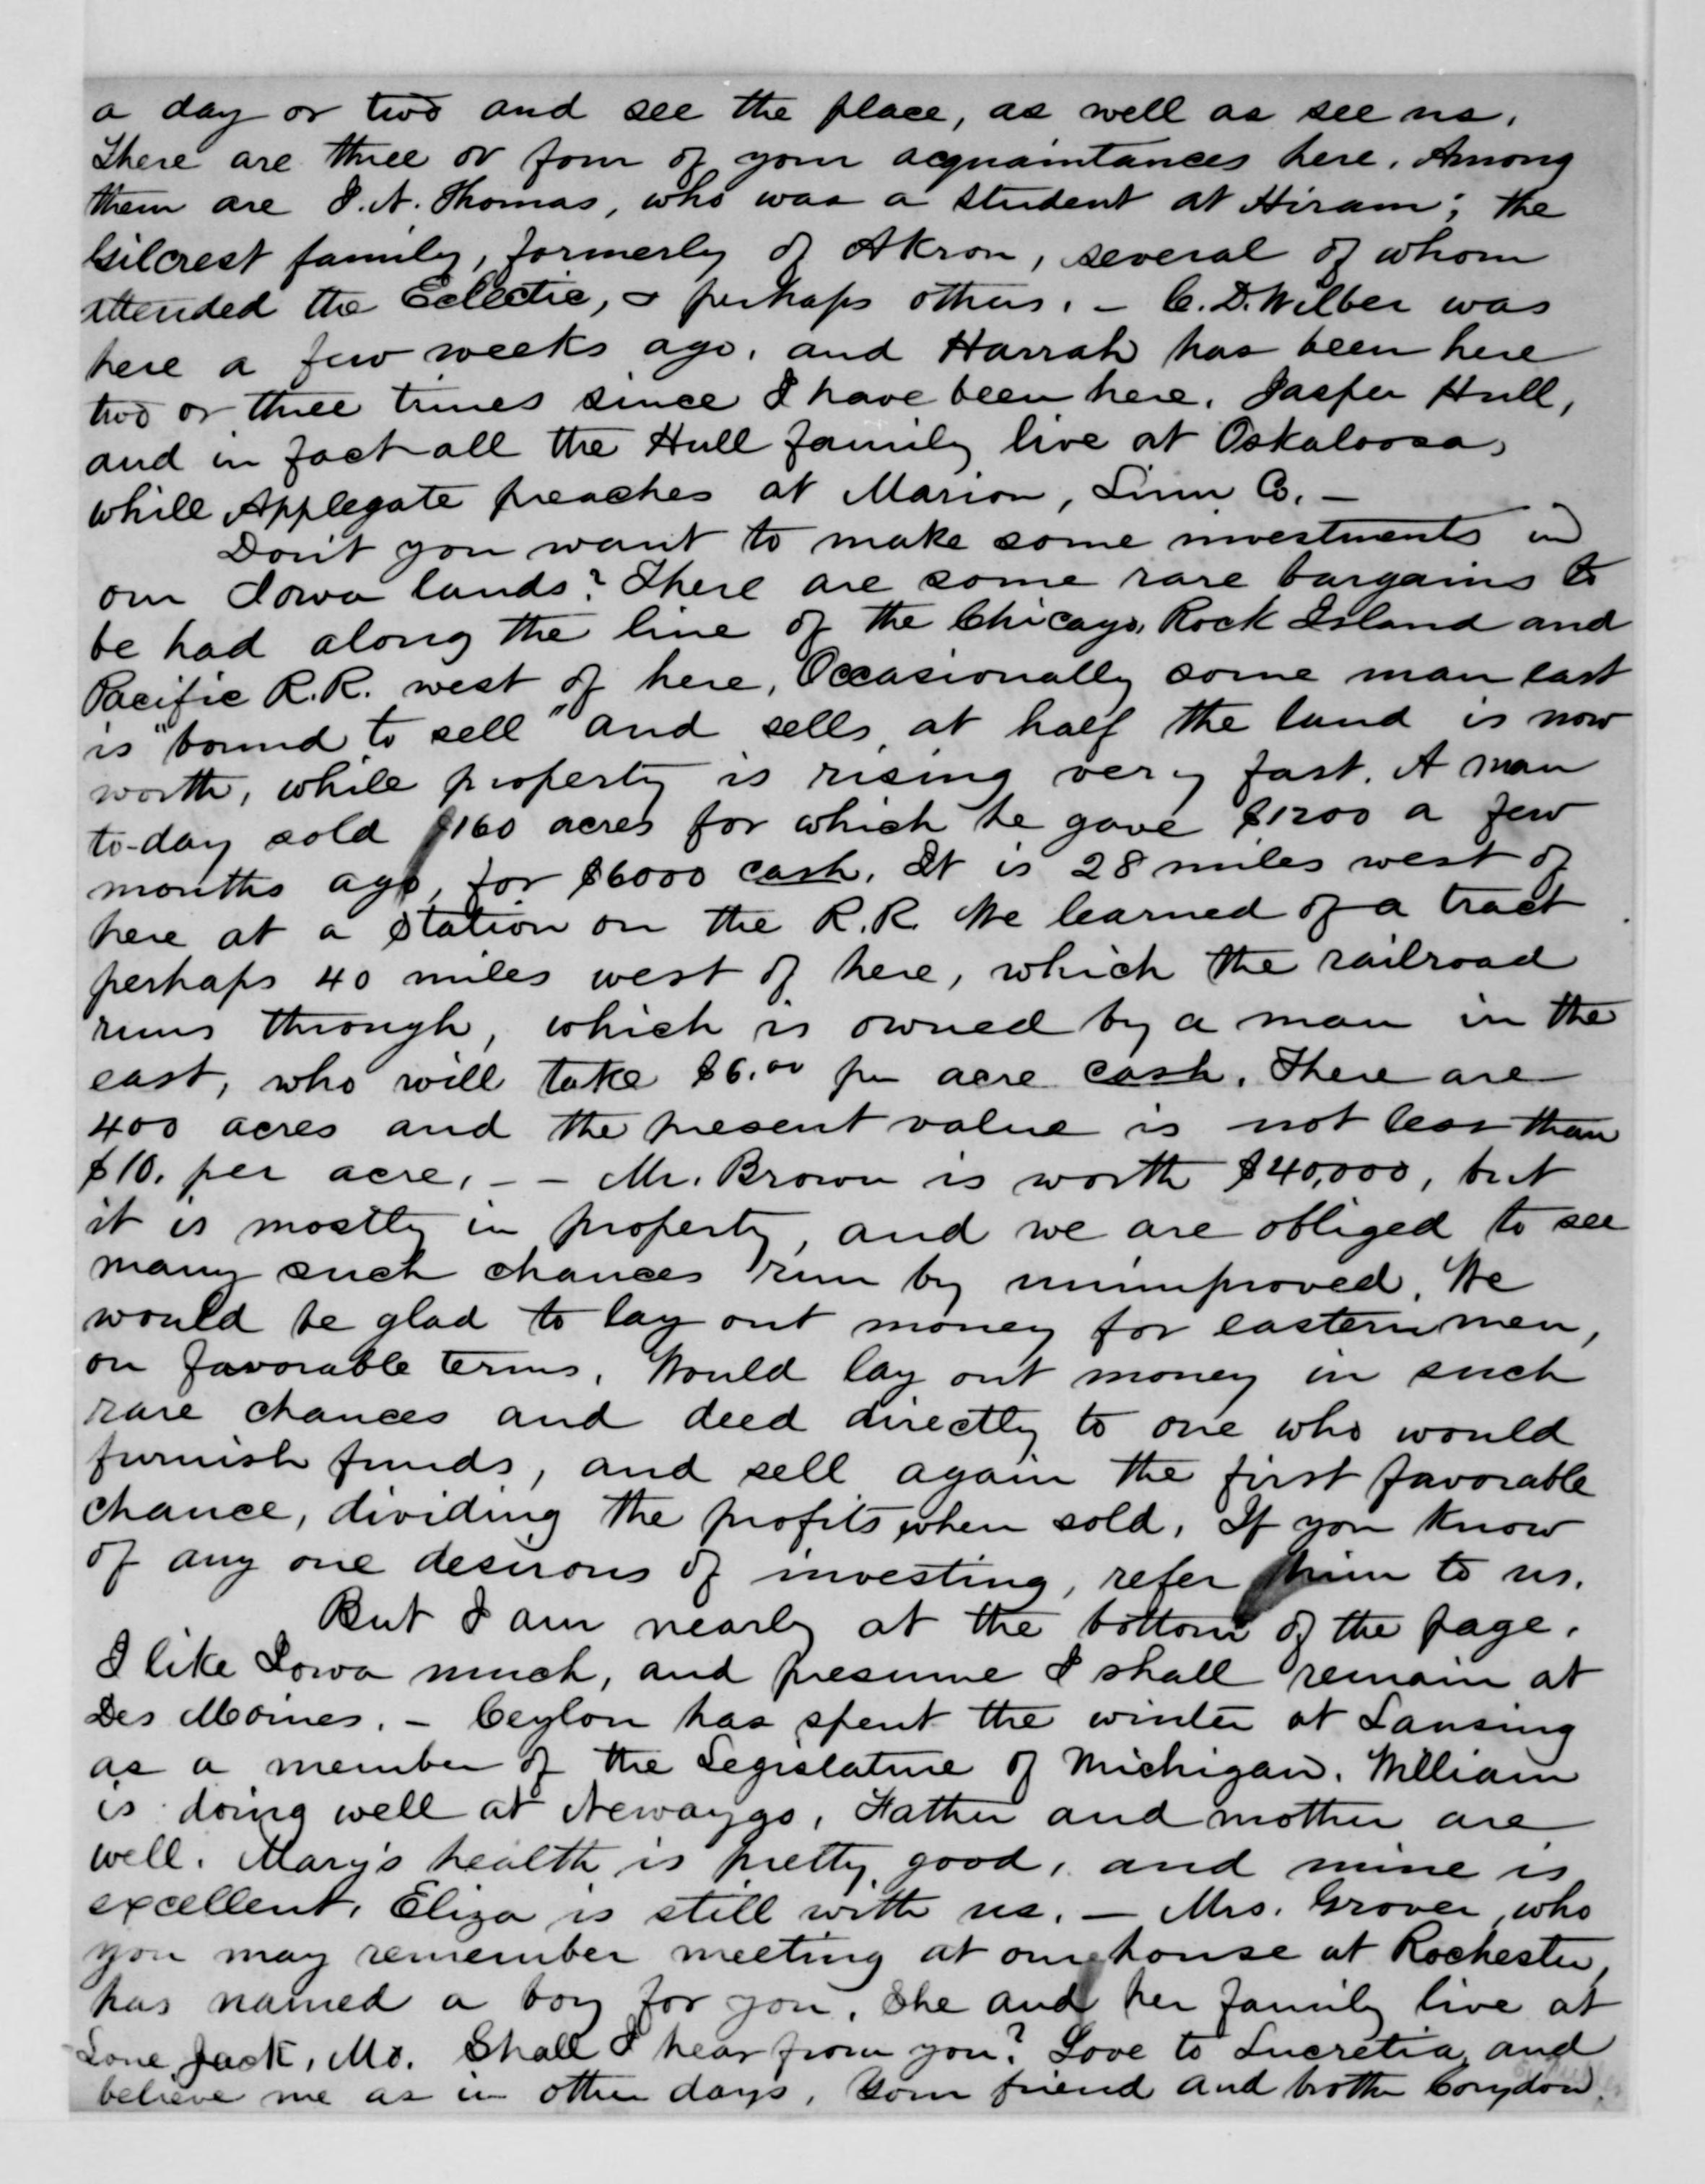 a day or two and see the place, as well as see us.
There are three or four of your acquaintances here. Among
them are I. N. Thomas, who was a student at Hiram; the
Gilcrest family, formerly of Akron, several of whom
attended the Eclectic, & perhaps others. – C. D. Wilber was
here a few weeks ago, and Harrah has been here
two or three times since I have been here. Jasper Hull,
and in fact all the Hull family live at Oskaloosa,
while Applegate preaches at Marion, Linn Co. –
Don't you want to make some investments in
our Iowa lands? There are some rare bargains to
be had along the line of the Chicago, Rock Island and
Pacific R.R. west of here. Occasionally some man east
is "bound to sell" and sells at half the land is now
worth, while property is rising very fast. A man
to-day sold 160 acres for which he gave $1200 a few
months ago, for $6000 cash. It is 28 miles west of
here at a station on the R.R. We learned of a tract
perhaps 40 miles west of here, which the railroad
runs through, which is owned by a man in the
east, who will take $6.00 per acre cash. There are
400 acres and the present value is not less than
$10. per acre. – – Mr. Brown is worth $40,000, but
it is mostly in property, and we are obliged to see
many such chances run by unimproved. We
would be glad to lay out money for eastern men,
on favorable terms. Would lay out money in such
rare chances and deed directly to one who would
furnish funds, and sell again the first favorable
chance, dividing the profits when sold. If you know
of any one desirous of investing, refer him to us.
But I am nearly at the bottom of the page.
I like Iowa much, and presume I shall remain at
Des Moines. – Ceylon has spent the winter at Lansing
as a member of the Legislature of Michigan. William
is doing well at Newaygo. Father and mother are
well. Mary's health is pretty good, and mine is
excellent. Eliza is still with us. – Mrs. Grover, who
you may remember meeting at our house at Rochester,
has named a boy for you. She and her family live at
Lone Jack, Mo. Shall I hear from you? Love to Lucretia, and
believe me as in other days, Your friend and brother Corydon.